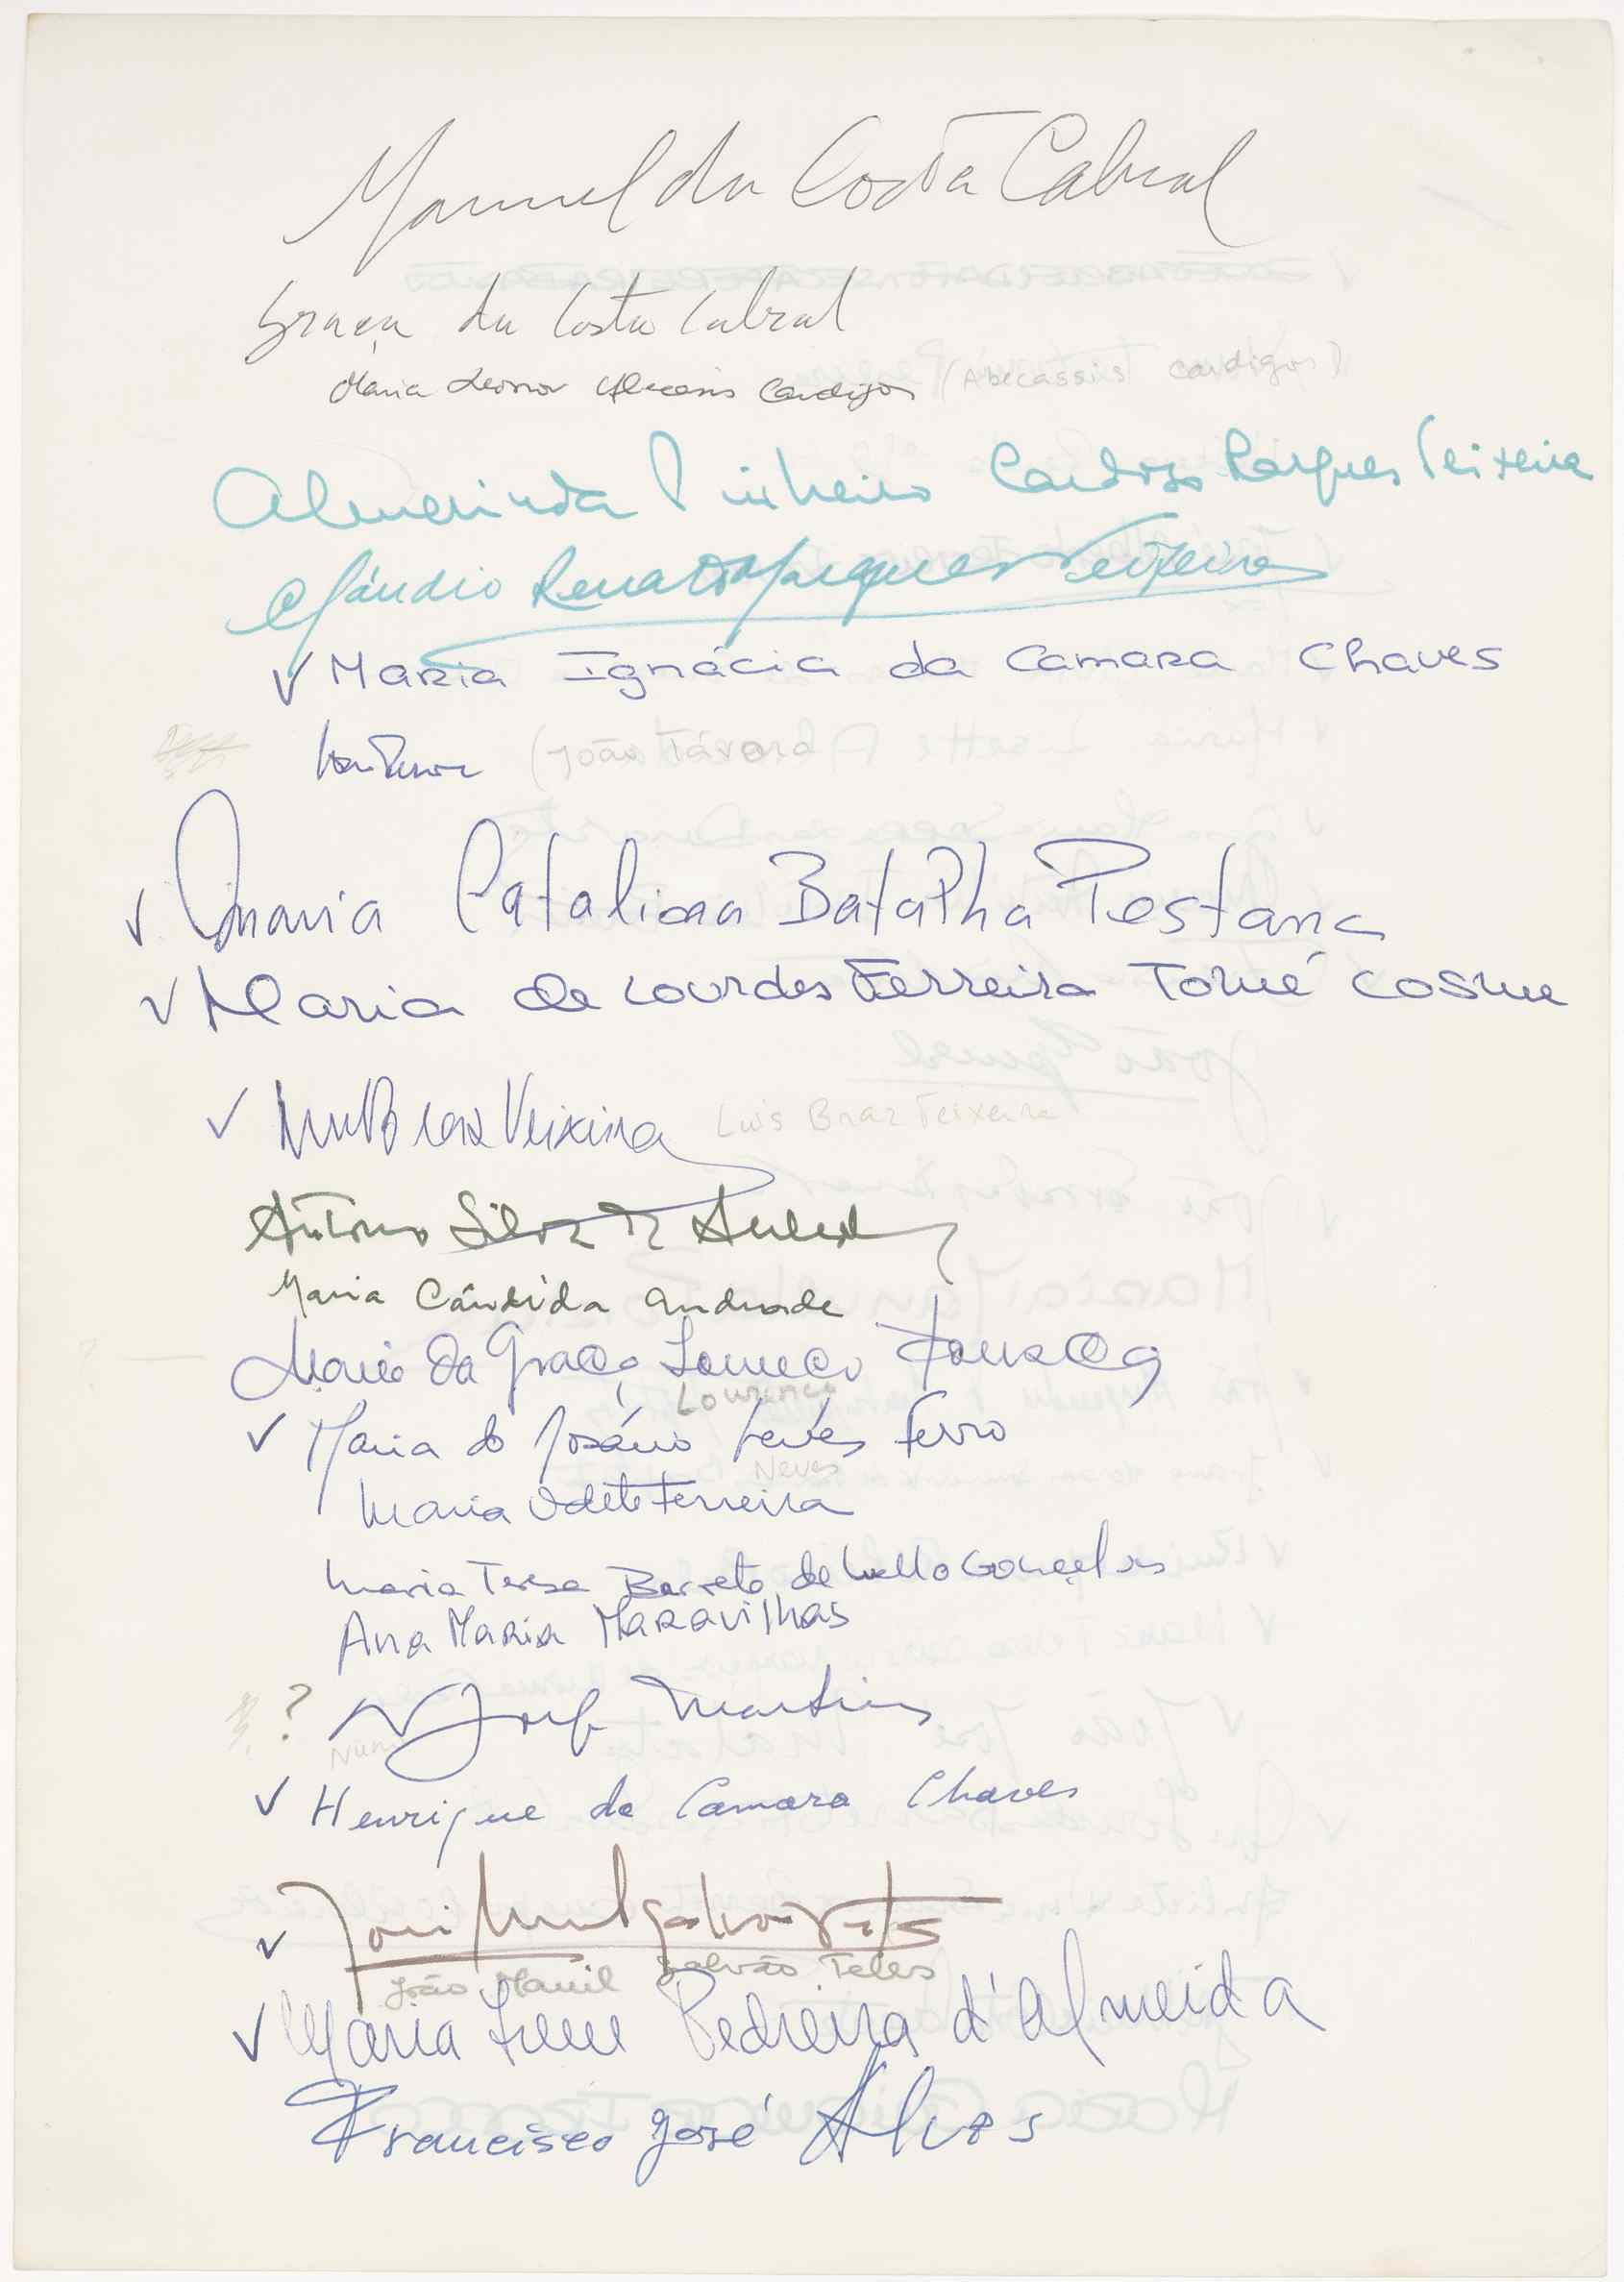 Manuel da Costa Cabral
Graça da Costa Cabral
Maria Leonor Abecasis Cardigos (Abecassis Cardigos)
Almerinda Pinheiro Cardoso Raques Teixeira
Cláudio Renato Marques Teixeira
✓ Maria Ignácia da Camara Chaves
(João Távora)
✓ Maria Catalina Batalha Pestana
✓ Maria de Lourdes Ferreira Tomé Cosme
✓ Braz Teixeira Luis Braz Teixeira
António Silva
Maria Cândida Andrade
Maria da Graça Lourenço Fonseca
Lourenço
✓ Maria do Rosário Neves Ferro
Neves
Maria Odete Ferreira
Maria Teresa Barreto de Mello Gonçalves
Ana Maria Maravilhas
? N Jorge Martins
Nuno
✓ Henrique da Camara Chaves
✓
João Manuel Galvão Teles
✓ Maria Irene Pedreira d'Almeida
Francisco José Alves